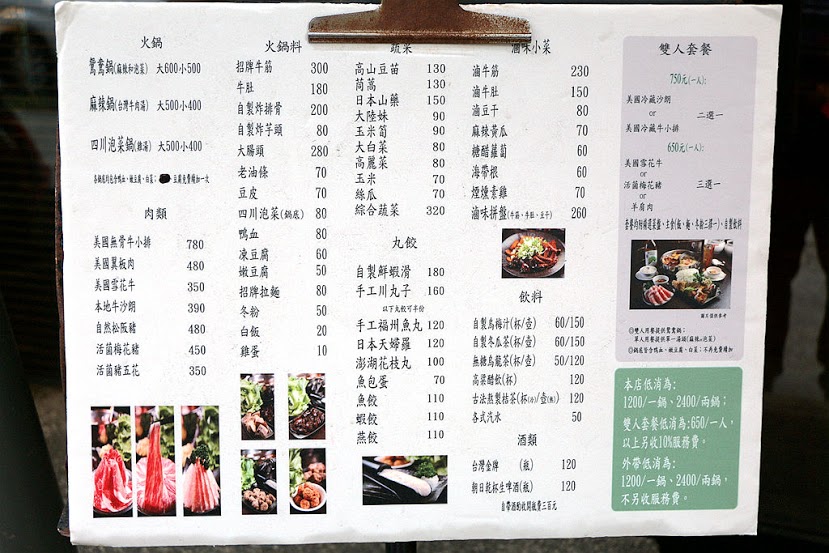 火鍋
鴛鴦鍋(麻辣和泡菜) 大600小500
麻辣鍋(台灣牛肉湯) 大500小400
四川泡菜鍋(雞湯) 大500小400
各鍋底均包含鴨血、嫩豆腐、白菜; 豆腐免費續加一次
肉類
美國無骨牛小排 780
美國翼板肉 480
美國雪花牛 350
本地牛沙朗 390
自然松阪豬 480
活菌梅花豬 450
活菌豬五花 350
火鍋料
招牌牛筋 300
牛肚 180
自製炸排骨 200
自製炸芋頭 80
大腸頭 280
老油條 70
豆皮 70
四川泡菜(鍋底) 80
鴨血 80
凍豆腐 60
嫩豆腐 50
招牌拉麵 80
冬粉 50
白飯 20
雞蛋 10
蔬菜
高山豆苗 130
茼蒿 130
日本山藥 150
大陸妹 90
玉米筍 90
大白菜 80
高麗菜 80
玉米 70
絲瓜 70
綜合蔬菜 320
丸餃
自製鮮蝦滑 180
手工川丸子 160
以下丸餃可半份
手工福州魚丸 120
日本天婦羅 120
澎湖花枝丸 100
魚包蛋 70
魚餃 110
蝦餃 110
燕餃 110
滷味小菜
滷牛筋 230
滷牛肚 150
滷豆干 80
麻辣黃瓜 70
糖醋蘿蔔 60
海帶根 60
煙燻素雞 70
滷味拼盤(牛筋、牛肚、豆干) 260
飲料
自製烏梅汁(杯/壺) 60/150
自製冬瓜茶(杯/壺) 60/150
無糖烏龍茶(杯/壺) 50/120
高粱醋飲(杯) 120
古法熬製桔茶(杯(冷)/壺(熱)) 120
各式汽水 50
酒類
台灣金牌 (瓶) 120
朝日乾杯生啤酒(瓶) 120
自帶酒酌收開瓶費三百元
雙人套餐
750元(一人):
美國冷藏沙朗
or 二選一
美國冷藏牛小排
650元(一人):
美國雪花牛
or
活菌梅花豬 三選一
or
羊肩肉
套餐均附精選菜盤、主食(飯、麵、冬粉三擇一)、自製飲料
圖片僅供參考
◎雙人用餐提供鴛鴦鍋;
單人用餐提供單一湯頭(麻辣or泡菜)
◎鍋底皆含鴨血、嫩豆腐、白菜;不再免費續加
本店低消為:
1200/一鍋、2400/兩鍋;
雙人套餐低消為:650/一人,
以上另收10%服務費。
外帶低消為:
1200/一鍋、2400/兩鍋,
不另收服務費。